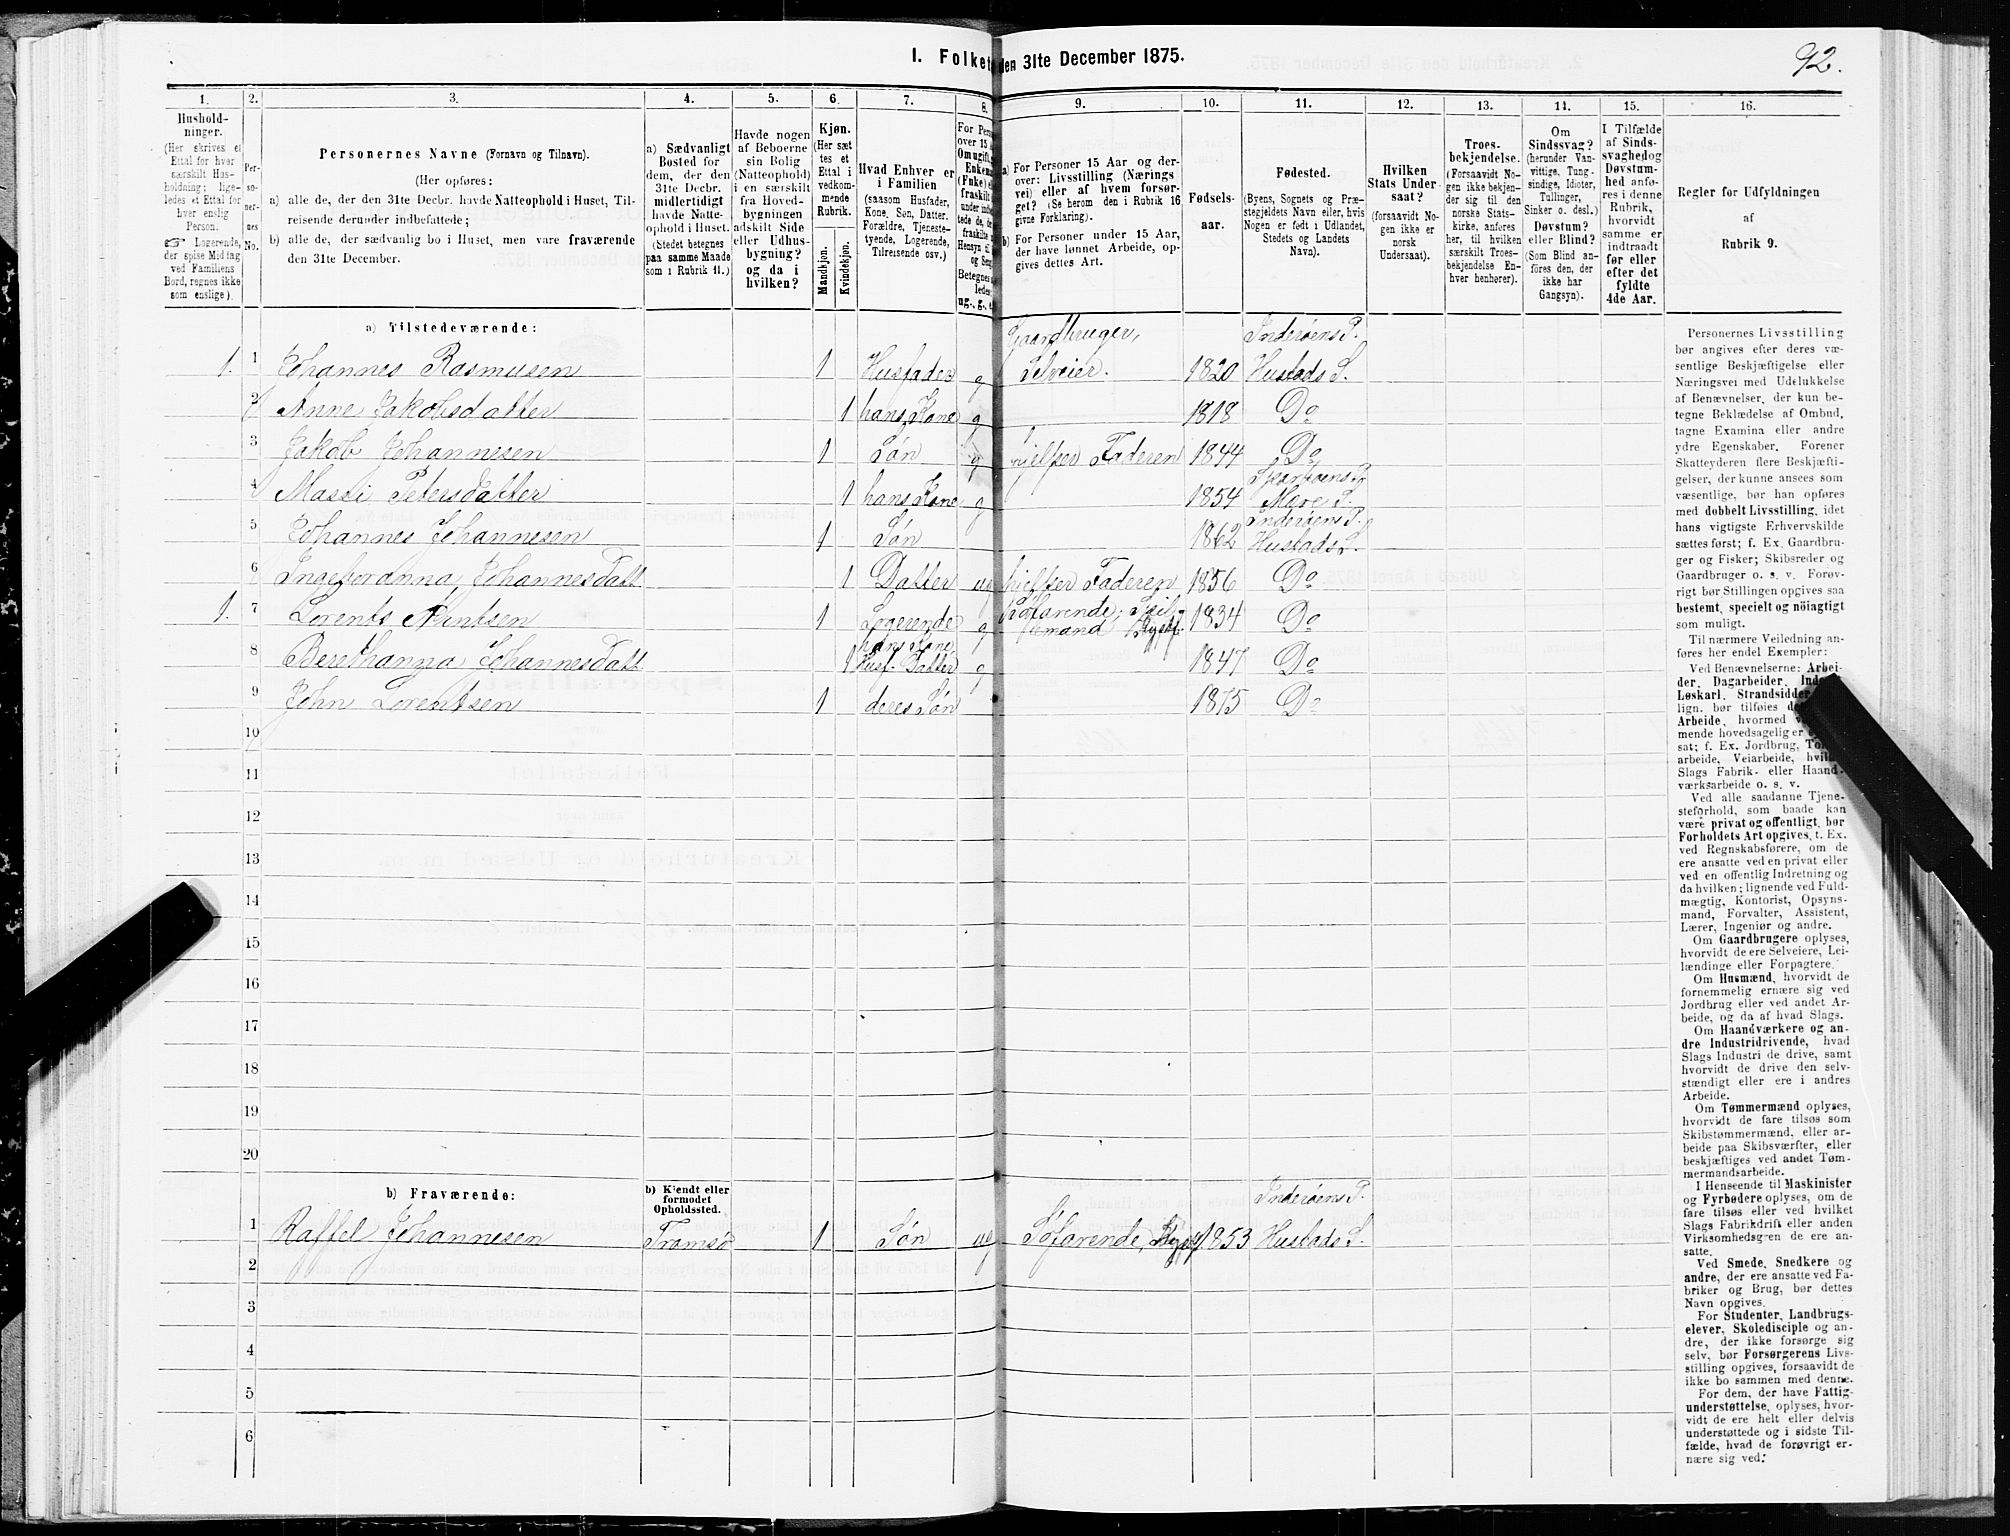 I. Folket den 31te December 1875.
92.
1. 2. 3. 4. 5. 6. 7. 8. 9. 10. 11. 12. 13. 14. 15. 16.
Hushold-
ninger.
(Her skrives et
Ettal for hver
særskilt Hus-
holdning; lige-
ledes et Ettal for
hver enslig
Person.
☞ Logerende,
der spise Middag
ved Familiens
Bord, regnes ikke
som enslige).
Per-
so-
ner-
nes
No.
Personernes Navne (Fornavn og Tilnavn).
(Her opføres:
a) alle de, der den 31te Decbr. havde Natteophold i Huset, Til-
reisende derunder indbefattede;
b) alle de, der sædvanlig bo i Huset, men vare fraværende
den 31te December.
a) Sædvanligt
Bosted for
dem, der den
31te Decbr.
midlertidigt
havde Natte-
ophold i Huset.
(Stedet betegnes
paa samme Maade
som i Rubrik 11.)
Havde nogen
af Beboerne
sin Bolig
(Natteophold)
i en særskilt
fra Hoved-
bygningen
adskilt Side
eller Udhus-
bygning?
og da i
hvilken?
Kjøn.
(Her sæt
tes et
Ettal i
vedkom-
mende
Rubrik.
Mandkjøn.
Kvindekjøn.
Hvad Enhver er
i Familien
(saasom Husfader,
Kone, Søn, Datter,
Forældre, Tjeneste-
tyende, Logerende,
Tilreisende osv.)
For Pers
over 15 A
Omugift,
Enkem
(Fnke) e
fraskilt
under ind
tede de, d
fraskilte
Hensyn til
og Sen
Betegnes
ledes
ug., g., e
a) For Personer 15 Aar og der-
over: Livsstilling (Nærings
vei) eller af hvem forsør-
get? (Se herom den i Rubrik 16
givne Forklaring).
b) For Personer under 15 Aar,
der have lønnet Arbeide, op-
gives dettes Art.
Fødsels-
aar.
Fødested.
(Byens, Sognets og Præ-
stegjeldets Navn eller, hvis
Nogen er født i Udlandet,
Stedets og Landets
Navn).
Hvilken
Stats Under-
saat?
(forsaavidt No-
gen ikke er
norsk
Undersaat).
Troes-
bekjendelse.
(Forsaavidt No-
gen ikke bekjen-
der sig til den
norske Stats-
kirke, anføres
her, til hvilken
særskilt Troes-
bekjendelse En-
hver henhører).
Om
Sindssvag?
(herunder Van-
vittige, Tung-
sindige, Idioter,
Tullinger,
Sinker o. desl.)
Døvstum?
eller Blind?
(Som Blind an-
føres den, der
ikke har
Gangsyn).
I Tilfælde
af Sinds-
svaghed og
Døvstum-
hed anfø-
res i denne
Rubrik,
hvorvidt
samme er
indtraadt
før eller
efter det
fyldte
4de Aar.
Regler for Udfyldningen
af
Rubrik 9.
a) Tilstedeværende:
Gaardbruger, Inderøens P.
1. 1 Johannes Rasmusen 1 Husfader g Selveier. 1820 Hustads S.
2 Anne Jakobsdatter 1 hans Kone g 1818 Do
3 Jakob Johannesen 1 Søn g hjelper Faderen 1844 Do
Sparboens P.
4 Massi Petersdatter 1 hans Kone g 1854 Mære S.
Inderøens P.
5 Johannes Johannesen 1 Søn 1862 Hustads S.
6 Ingeboranna Johannesdatt 1 Datter ug hjelper Faderen 1856 Do
1. 7 Lorents 1 Logerende g Søfarende, 1834 Do
hans Kone
8 Berethanna Johannesdatt 1 Husf. Datter g 1847 Do
9 John Lorentsen 1 deres Søn 1875 Do
10
11
12
13
14
15
16
17
18
19
20
b) Fraværende:
b) Kjendt eller
formodet
Opholdssted.
Inderøens P.
1 Raffel Johannesen Tromsø 1 Søn ug Søfarende, 1853 Hustads S.
2
3
4
5
6
Personernes Livsstilling
bør angives efter deres væ-
sentlige Beskjæftigelse eller
Næringsvei med Udelukkelse
af Benævnelser, der kun be-
tegne Beklædelse af Ombud,
tagne Examina eller andre
ydre Egenskaber. Forener
Skatteyderen flere Beskjæfti-
gelser, der kunne ansees som
væsentlige, bør han opføres
med dobbelt Livsstilling, idet
hans vigtigste Erhvervskilde
sættes først; f. Ex. Gaardbru-
ger og Fisker; Skibsreder og
Gaardbruger o. s. v. Forøv-
rigt bør Stillingen opgives saa
bestemt, specielt og nöiagtigt
som muligt.
Til nærmere Veiledning an-
føres her endel Exempler:
Ved Benævnelserne: Arbei-
der, Dagarbeider, Inder
Løskarl, Strandsidder
lign. bør tilføies d
Arbeide, hvormed v
mende hovedsagelig er
sat; f. Ex. Jordbrug, To
arbeide, Veiarbeide, hvil
Slags Fabrik- eller Haand-
værksarbeide o. s. v.
Ved alle saadanne Tjene-
steforhold, som baade kan
være privat og offentligt, bør
Forholdets Art opgives, f. Ex.
ved Regnskabsførere, om de
ere ansatte ved en privat eller
ved en offentlig Indretning og
da hvilken; lignende ved Fuld-
mægtig, Kontorist, Opsyns-
mand, Forvalter, Assistent,
Lærer, Ingeniør og andre.
Om Gaardbrugere oplyses,
hvorvidt de ere Selveiere, Lei-
lændinge eller Forpagtere.
Om Husmænd, hvorvidt de
fornemmelig ernære sig ved
Jordbrug eller ved andet Ar-
beide, og da af hvad Slags.
Om Haandværkere og an-
dre Industridrivende, hvad
Slags Industri de drive, samt
hvorvidt de drive den selv-
stændigt eller ere i andres
Arbeide.
Om Tømmermænd oplyses,
hvorvidt de fare tilsøs som
Skibstømmermænd, eller ar-
beide paa Skibsværfter, eller
beskjæftiges ved andet Tøm-
mermandsarbeide.
I Henseende til Maskinister
og Fyrbødere oplyses, om de
fare tilsøs eller ved hvilket
Slags Fabrikdrift eller anden
Virksomhedsgren de ere an-
satte.
Ved Smede, Snedkere og
andre, der ere ansatte ved Fa-
briker og Brug, bør dettes
Navn opgives.
For Studenter, Landbrugs-
elever, Skoledisciple og an-
dre, der ikke forsørge sig
selv, bør Forsørgerens Livs-
stilling opgives, forsaavidt de
ikke bo sammen med denne.
For dem, der have Fattig-
understøttelse, oplyses, hvor-
vidt de ere helt eller delvis
understøttede og i sidste Til-
fælde, hvad de forøvrigt er-
nære sig ved.